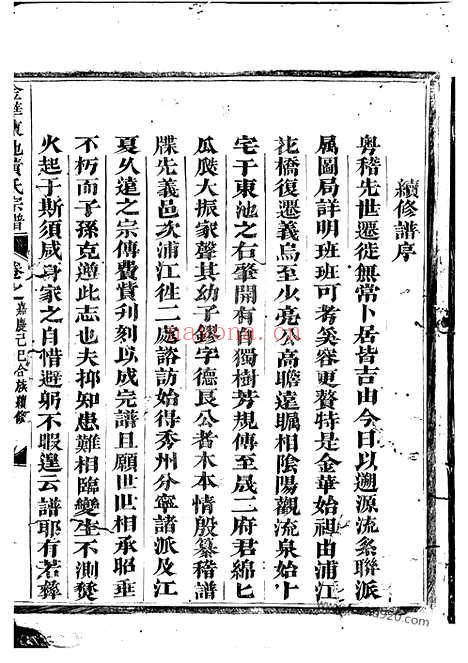 續修譜序
粵稽先世遷徙無常卜居皆吉由今日以遡源流条聯派
属圖局詳明班班可考奚容更贅特是金華始祖由浦江
花橋復遷義烏至少亮公高瞻遠矚相陰陽觀流泉始卜
宅于東池之右肇開有自獨樹芳規傳至晟二府君綿匕
瓜瓞大振家聲其幼子錢字德良公者木本情殷纂稽譜
牒先義邑次浦江徃二處諮訪始得秀州分寧諸派及江
夏久遠之宗傳費貲刋刻以成完譜且願世世相承昭垂
不朽而子孫克遵此志也夫抑知患難相臨變生不測焚
火起于斯須咸身家之自惜避躬不暇遑云譜耶有若彝
金華東池黃氏宗譜 卷之一 嘉慶己巳合族續修